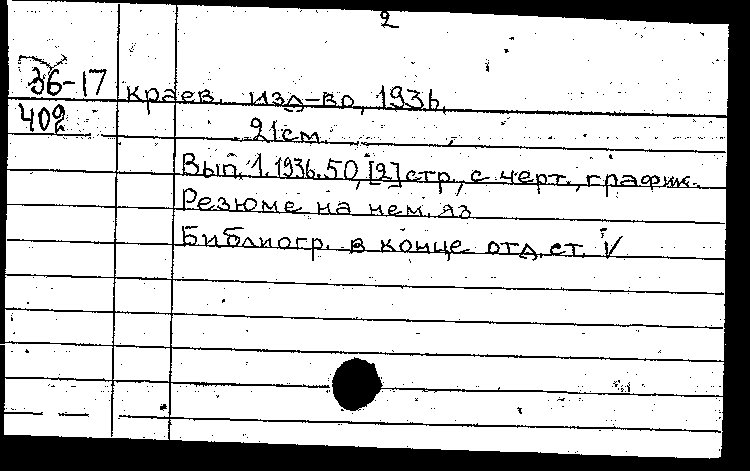 2
36-17 краев. изд-во, 1936.
402 21см.
Вып. 1. 1936. 50, [2] стр., с черт., график.
Резюме на нем. яз
Библиогр. в конце отд. ст. V